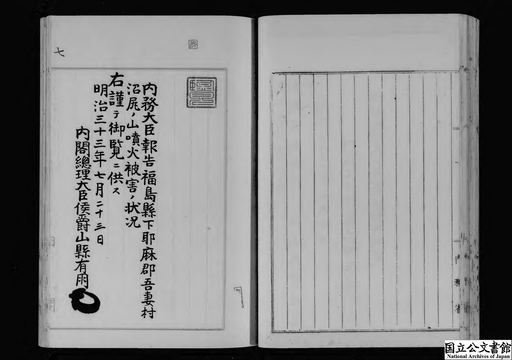 七
内務大臣報告福島縣下耶麻郡吾妻村
沼尻ノ山噴火被害ノ状况
右謹テ御覧ニ供ス
明治三十三年七月二十三日
内閣總理大臣侯爵山縣有朋
国立公文書館
National Archives of Japan